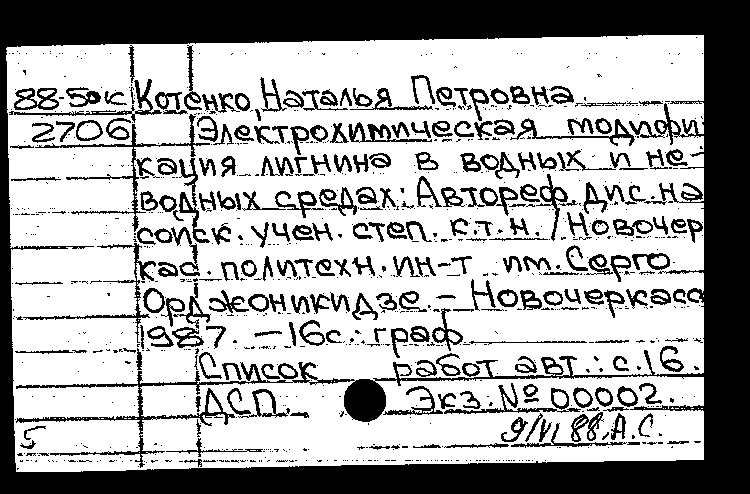 88-50к Котенко, Наталья Петровна.
2706 Электрохимическая модифи
кация лигнина в водных и не-
водных средах: Автореф. дис. на
соиск. учен. степ. к.т.н. / Новочер
кас. политехн. ин-т им. Серго
Орджоникидзе. – Новочеркасс
1987. – 16с.: граф
Список работ авт.: с.16.
ДСП. Экз. № 00002.
5 9/VI 88. А.С.